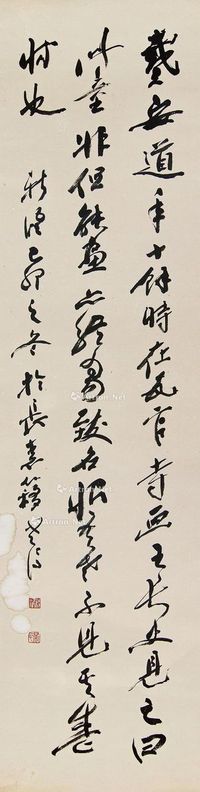 戴安道年十余時在瓦官寺画王長史見之曰
此童非但能画亦終当致名恨吾老不見其盛
時也
新语 己卯之冬於長
Artron.Net